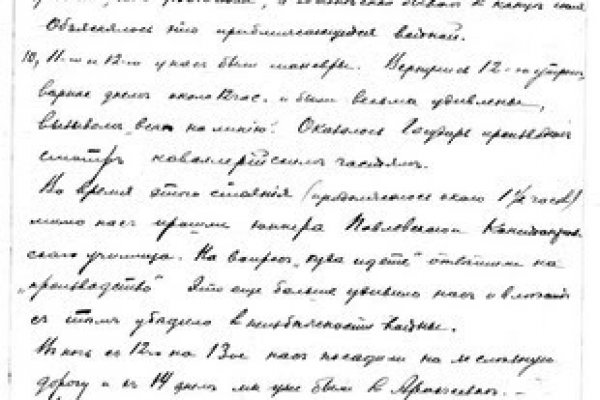 Объяснялось это приближающейся войной.
10, 11-го и 12-го у нас были маневры. Вернулись 12-го утром,
вернее днем около 12 час. и были весьма удивлены,
вызывом „всех на линию". Оказалось Государь производил
смотр кавалерийским частям.
Во время этого стояния (продолжалось около 1½ часов)
мимо нас прошли юнкера Павловского
ского училища. На вопрос „куда идете" ответили на
„производство" Это еще больше удивило нас и
с тем убедило в неизбежности войны.
В ночь с 12-го на 13-ое нас посадили на железную
дорогу и с 14 днем мы уже были в